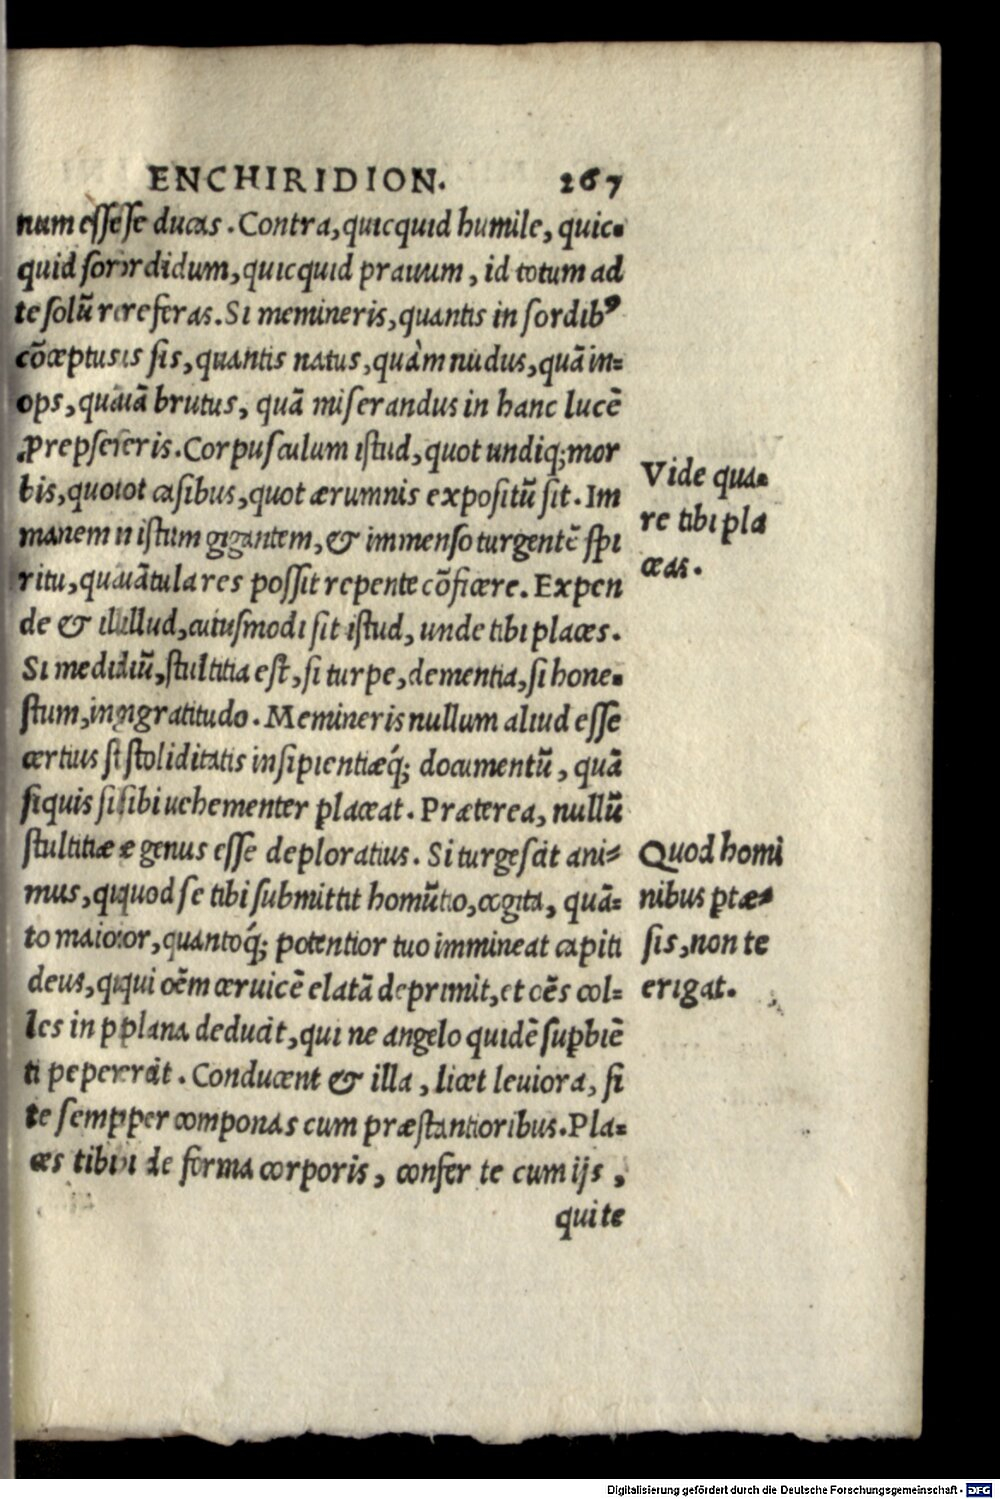 ENCHIRIDION. 267
num esse ducas. Contra, quicquid humile, quic-
quid sordidum, quicquid prauum, id totum ad
te solũ referas. Si memineris, quantis in sordibꝰ
cõceptus sis, quantis natus, quàm nudus, quã in-
ops, quã brutus, quã miserandus in hanc lucẽ
ꝓrepseris. Corpusculum istud, quot undiq; mor
bis, quot casibus, quot ærumnis expositũ sit. Im
manem istum gigantem, & immenso turgentẽ spi
ritu, quãtula res possit repente cõficere. Expen
de & illud, cuiusmodi sit istud, unde tibi places.
Si mediũ, stultitia est, si turpe, dementia, si hone-
stum, ingratitudo. Memineris nullum aliud esse
certius stoliditatis insipientiæq́; documentũ, quã
si quis sibi uehementer placeat. Præterea, nullũ
stultitiæ genus esse deploratius. Si turgescit ani-
mus, quod se tibi submittit homũtio, cogita, quã-
to maior, quantoq́; potentior tuo immineat capiti
deus, qui oẽm ceruicẽ elatã deprimit, et oẽs col-
les in plana deducit, qui ne angelo quidẽ suꝑbiẽ
ti pepercit. Conducent & illa, licet leuiora, si
te semper componas cum præstantioribus. Pla-
ces tibi de forma corporis, confer te cum ijs,
qui te
Vide qua-
re tibi pla
ceas.
Quod homi
nibus ptæ-
sis, non te
erigat.
Digitalisierung gefördert durch die Deutsche Forschungsgemeinschaft - DFG